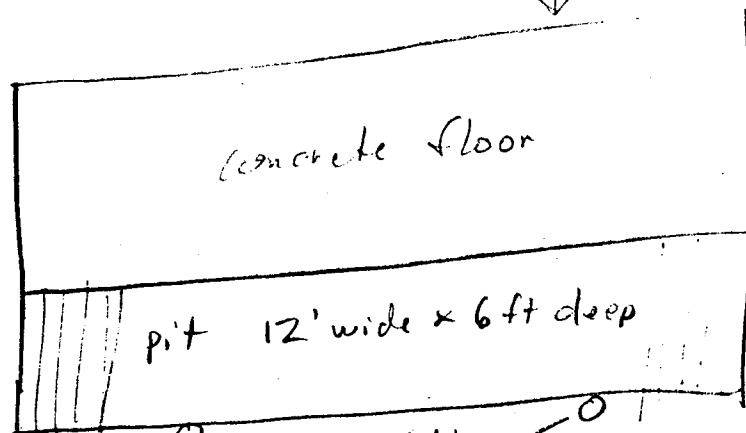 concrete floor
pit 12' wide x 6 ft deep